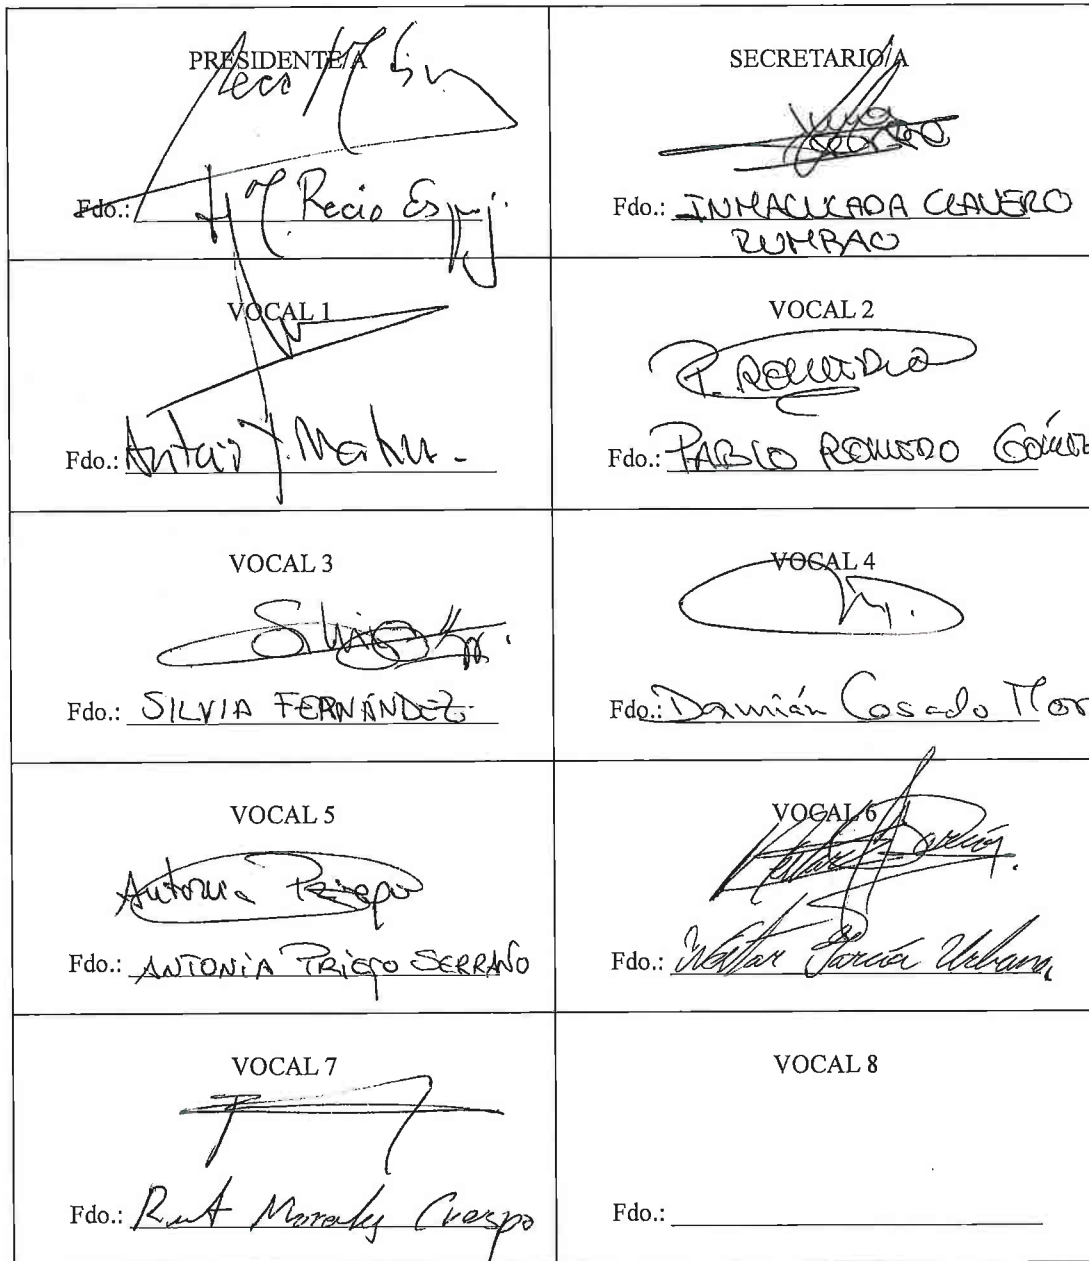 PRESIDENTE/A
Fdo.: Mª Recio Espej.
SECRETARIO/A
Inma
Fdo.: INMACULADA CLAVERO
ZUMBAO
VOCAL 1
Fdo.: Antonio J. Martín.
VOCAL 2
P. ROMERO
Fdo.: PABLO ROMERO GÓMEZ
VOCAL 3
Silvia
Fdo.: SILVIA FERNÁNDEZ
VOCAL 4
Fdo.: Damián Casado Mor
VOCAL 5
Antonia Priego
Fdo.: ANTONIA PRIEGO SERRANO
VOCAL 6
Néstor García
Fdo.: Néstor García Urbano
VOCAL 7
Fdo.: Rut Morales Crespo
VOCAL 8
Fdo.: